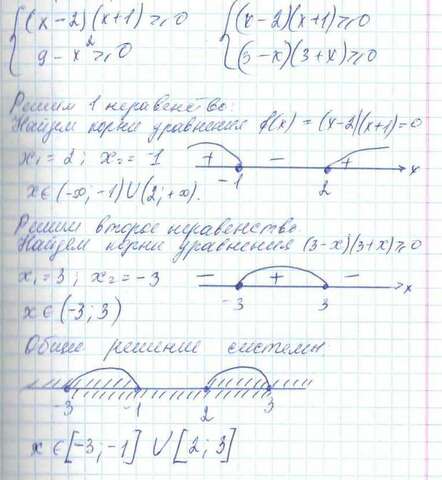 (x-2)(x+1)≥0 (x-2)(x+1)≥0
9-x²≥0 (3-x)(3+x)≥0
Решим 1 неравенство:
Найдем корни уравнения f(x) = (x-2)(x+1)=0
x₁=2; x₂= 1 + − +
-1 2 x
x∈(-∞,-1)∪(2;+∞).
Решим второе неравенство
Найдем корни уравнения (3-x)(3+x)≥0
x₁=3; x₂=-3 − + −
-3 3 x
x∈(-3;3)
Общее решение системы
-3 -1 2 3
x∈[-3;-1]∪[2;3]